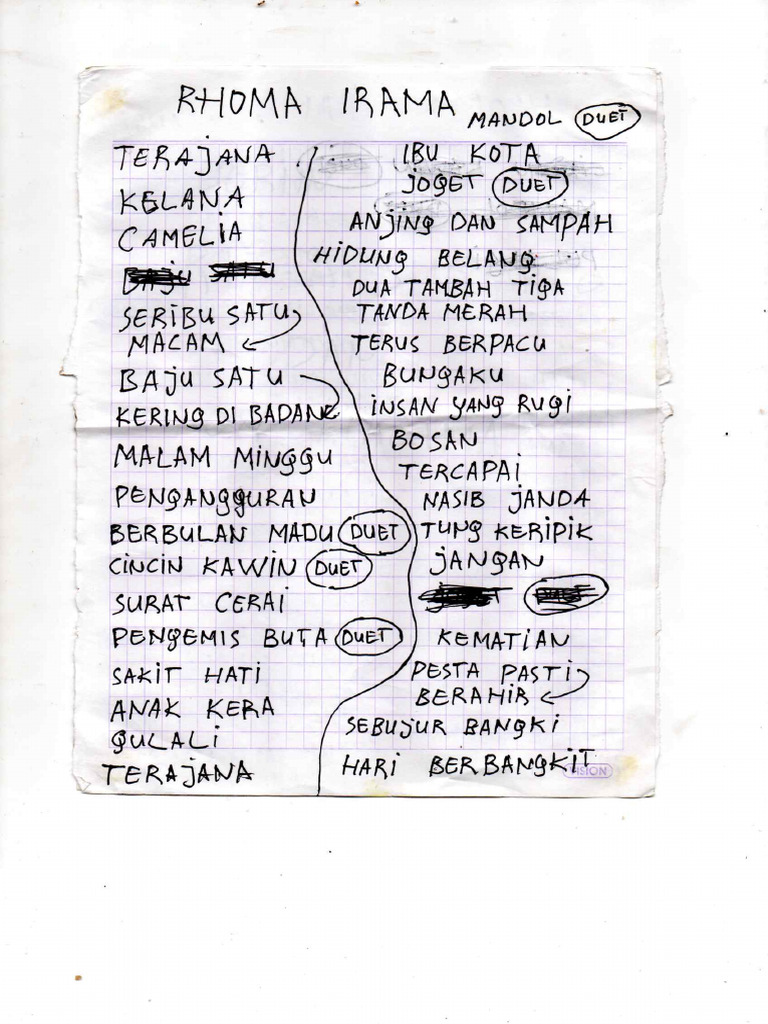 RHOMA IRAMA
MANDOL DUET
TERAJANA
KELANA
CAMELIA
BAJU SATU
SERIBU SATU
MACAM
BAJU SATU
KERING DI BADAN
MALAM MINGGU
PENGANGGURAN
BERBULAN MADU DUET
CINCIN KAWIN DUET
SURAT CERAI
PENGEMIS BUTA DUET
SAKIT HATI
ANAK KERA
GULALI
TERAJANA
IBU KOTA
JOGET DUET
ANJING DAN SAMPAH
HIDUNG BELANG
DUA TAMBAH TIGA
TANDA MERAH
TERUS BERPACU
BUNGAKU
INSAN YANG RUGI
BOSAN
TERCAPAI
NASIB JANDA
TUNG KERIPIK
JANGAN
KEMATIAN
PESTA PASTI
BERAHIR
SEBUJUR BANGKI
HARI BERBANGKIT
VISION